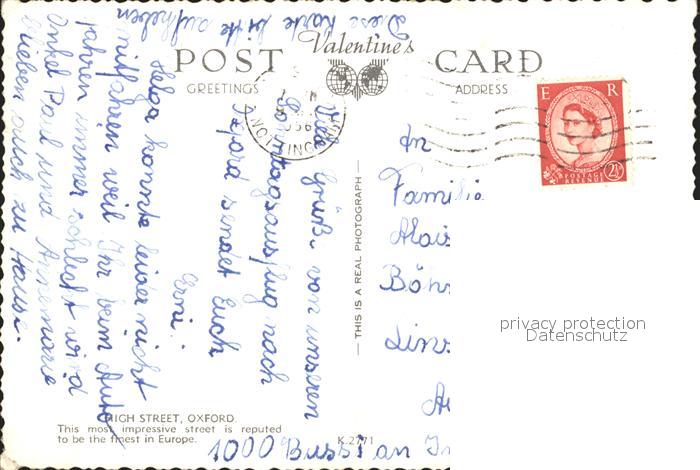 Diese Karte bitte aufheben
Valentine's
POST CARD
GREETINGS
ADDRESS
NOTTINGHAM
1956
E R
POSTAGE
REVENUE
2½
Viele Grüße von unserem
Sonntagsausflug nach
Oxford sendet Euch
Erni.
Helga konnte leider nicht
mitfahren weil Ihr beim Auto
fahren immer schlecht wird
Onkel Paul und Annemarie
blieben auch zu Hause.
1000 Bussi an
THIS IS A REAL PHOTOGRAPH
An
Familie
Alois
Böh
Linz
HIGH STREET, OXFORD.
This most impressive street is reputed
to be the finest in Europe.
K.2771
privacy protection
Datenschutz